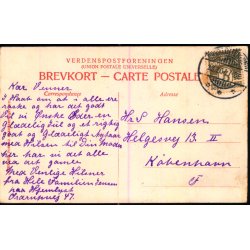 VERDENSPOSTFORENINGEN
(UNION POSTALE UNIVERSELLE)
BREVKORT – CARTE POSTALE
Correspondance
Adresse
Kær Venner
I Haab om at i alle ere
raske og har det godt
vil vi Ønske Eder en
Glædelig Jul og et rigtig
godt og Glædeligt Nytaar
med Hilsen til Din Moder
her har vi det alle
det gamle
Med Venlige Hilsner
fra Hele Familien
47.
Hr S Hansen.
Helgesvej 13. II
København
F